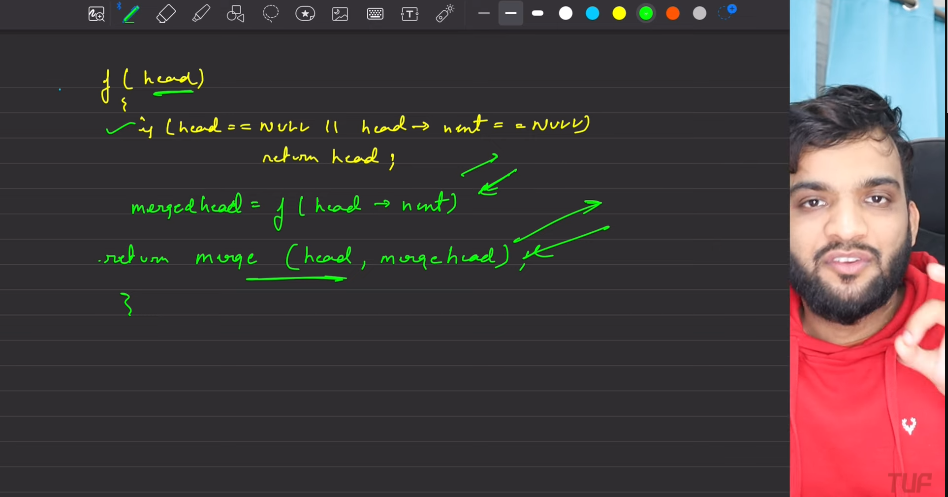 f ( head)
{
if (head == NULL || head → next == NULL)
return head ;
mergedhead = f ( head → next )
return merge (head , mergehead) ;
}
TUF